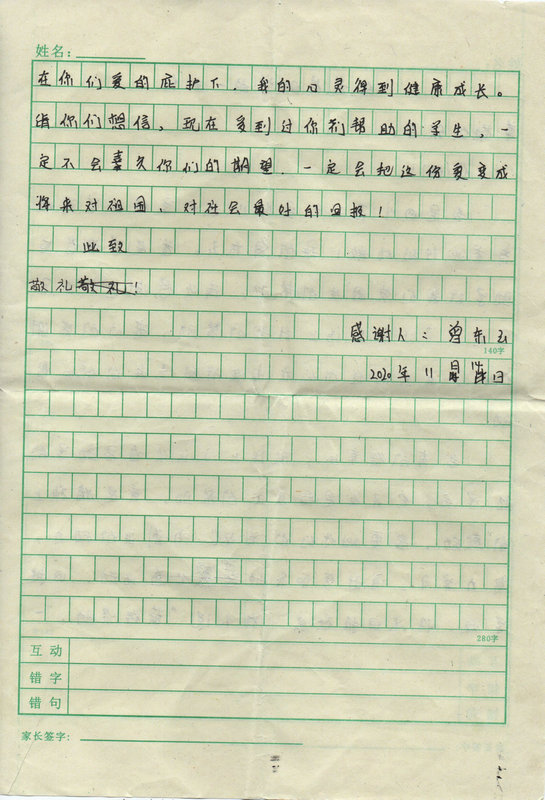 姓名：
在你们爱的庇护下，我的心灵得到健康成长。
请你们想信，现在受到过你们帮助的学生，一
定不会辜负你们的期望，一定会把这份爱变成
将来对祖国，对社会最好的回报！
此致
敬礼敬礼！
感谢人：曾东云
140字
2020年11月 日
280字
互动
错字
错句
家长签字：